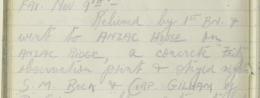 Fri. Nov 9th
Relieved by 1st Bn. &
went to ANZAC House on
ANZAC RIDGE, a concrete
observation post & stayed night
S.M. BECK & CORP. GILHAM of